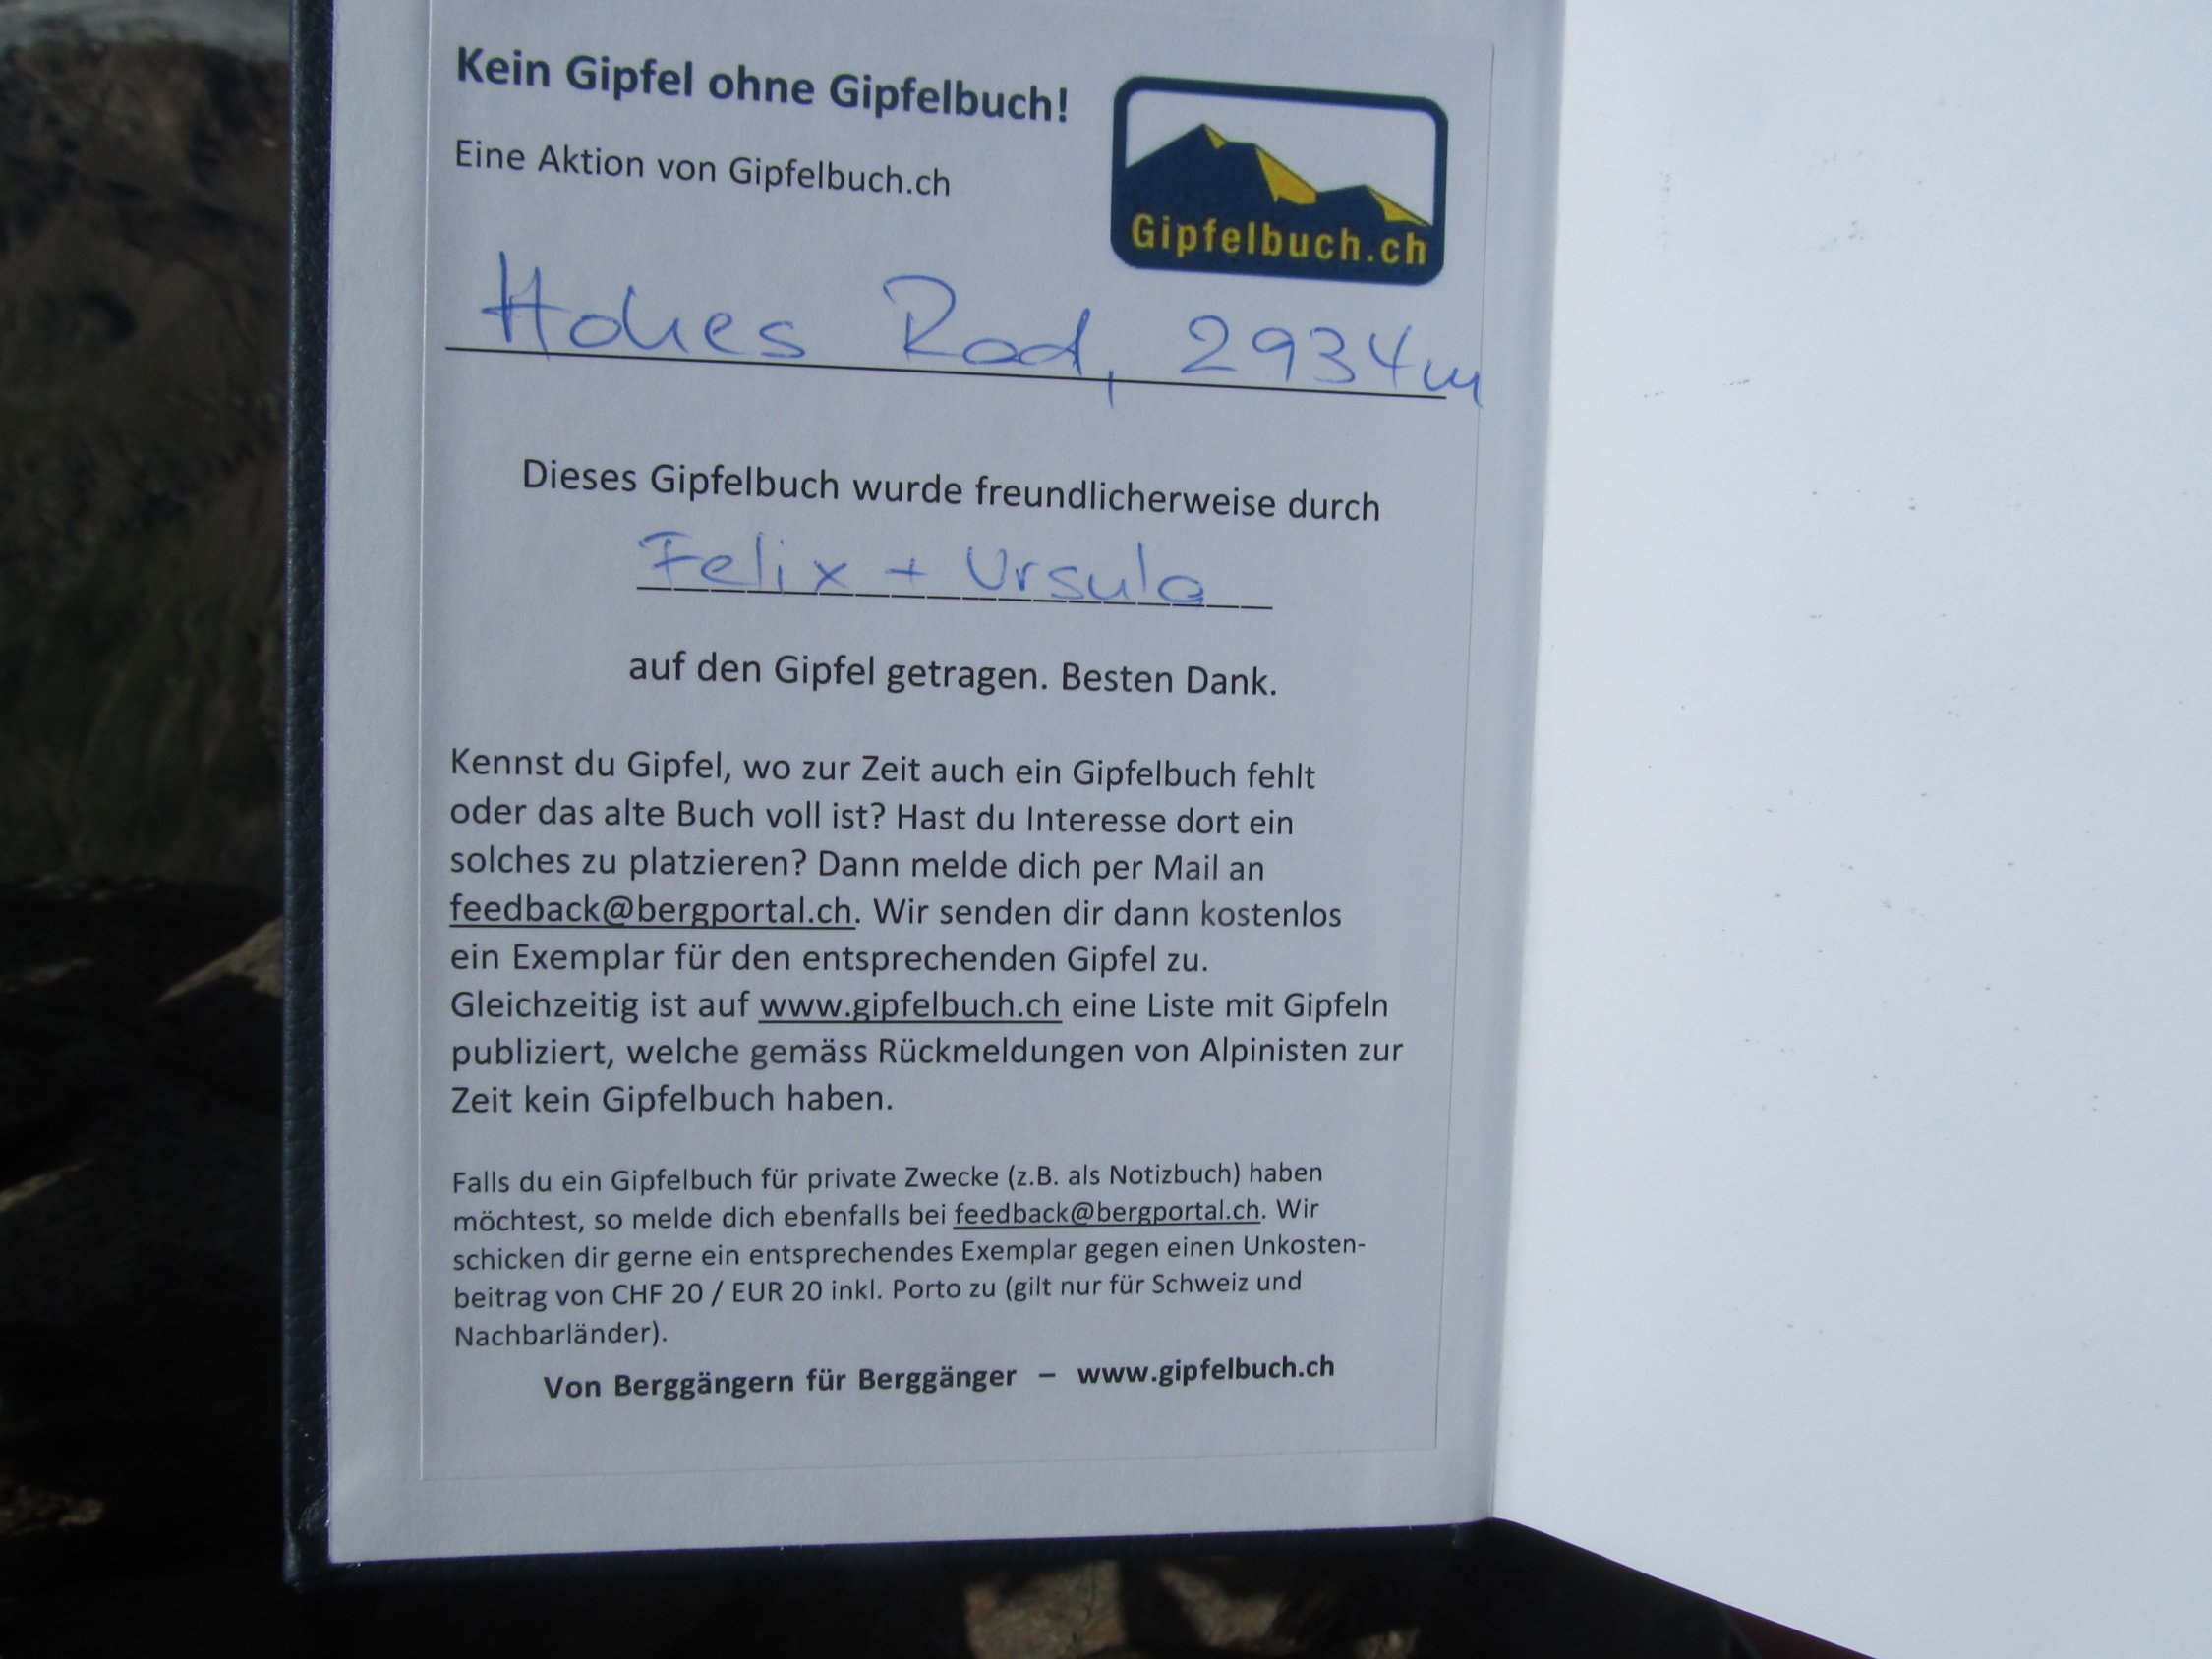 Kein Gipfel ohne Gipfelbuch!
Eine Aktion von Gipfelbuch.ch
Gipfelbuch.ch
Hohes Rad, 2934m
Dieses Gipfelbuch wurde freundlicherweise durch
Felix + Ursula
auf den Gipfel getragen. Besten Dank.
Kennst du Gipfel, wo zur Zeit auch ein Gipfelbuch fehlt
oder das alte Buch voll ist? Hast du Interesse dort ein
solches zu platzieren? Dann melde dich per Mail an
feedback@bergportal.ch. Wir senden dir dann kostenlos
ein Exemplar für den entsprechenden Gipfel zu.
Gleichzeitig ist auf www.gipfelbuch.ch eine Liste mit Gipfeln
publiziert, welche gemäss Rückmeldungen von Alpinisten zur
Zeit kein Gipfelbuch haben.
Falls du ein Gipfelbuch für private Zwecke (z.B. als Notizbuch) haben
möchtest, so melde dich ebenfalls bei feedback@bergportal.ch. Wir
schicken dir gerne ein entsprechendes Exemplar gegen einen Unkosten-
beitrag von CHF 20 / EUR 20 inkl. Porto zu (gilt nur für Schweiz und
Nachbarländer).
Von Berggängern für Berggänger – www.gipfelbuch.ch